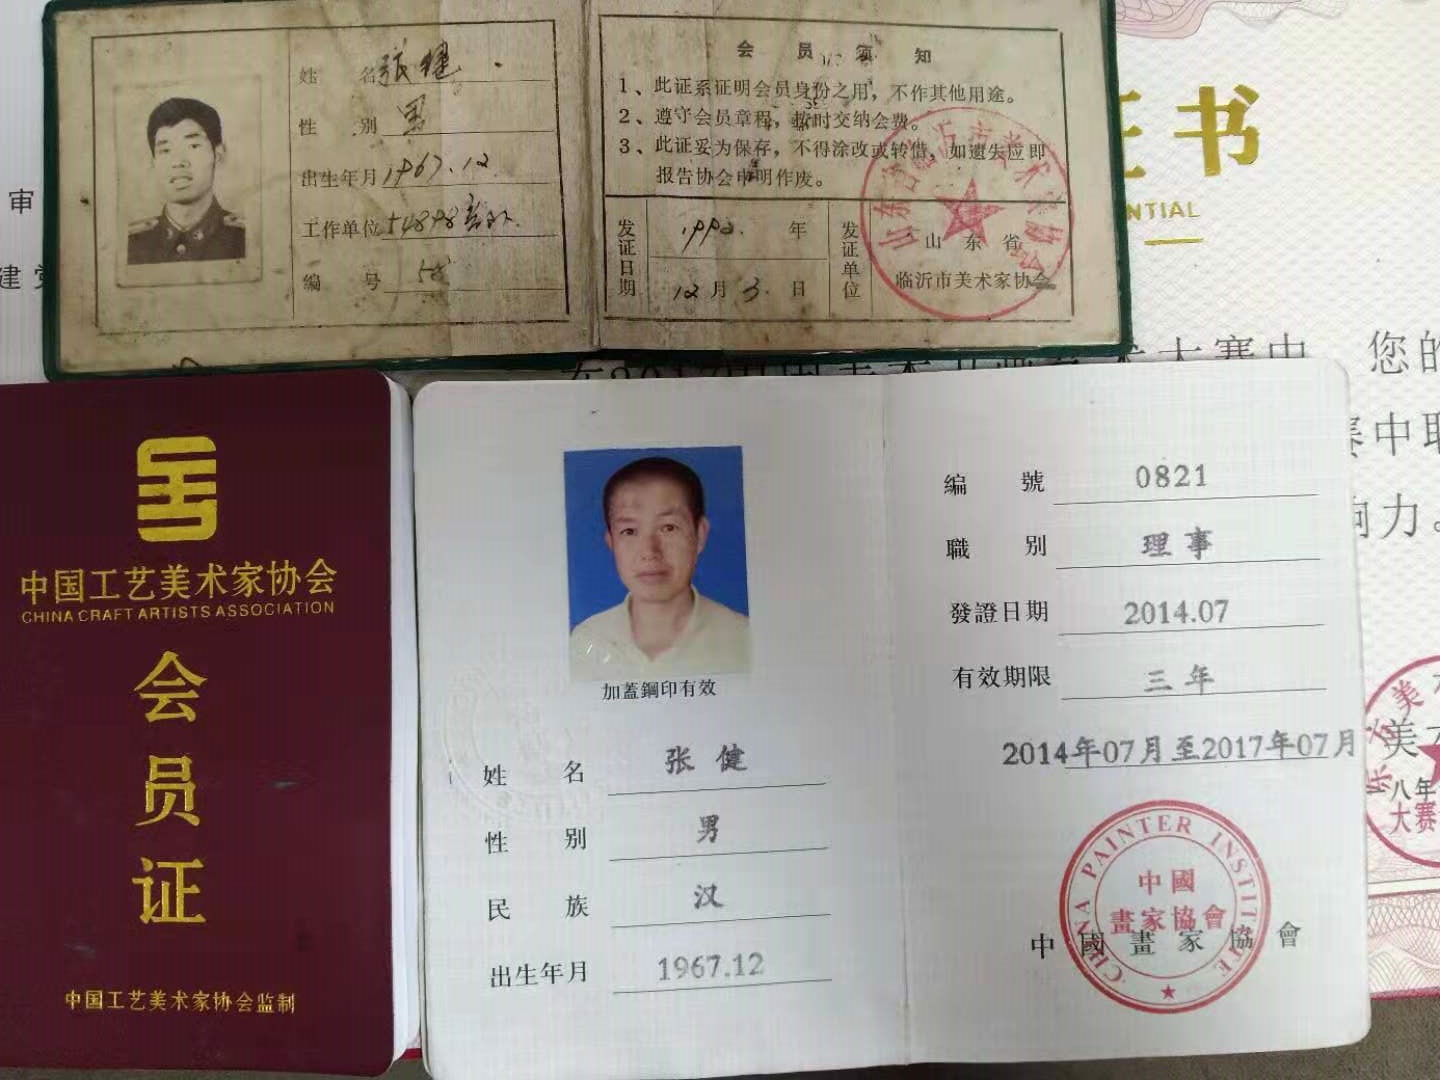 姓 名 张健
性 别 男
出生年月 1967.12.
工作单位 54898部队
编 号
会员须知
1、此证系证明会员身份之用，不作其他用途。
2、遵守会员章程，按时交纳会费。
3、此证妥为保存，不得涂改或转借，如遗失应即
报告协会申明作废。
发证日期
1992. 年
12月3.日
发证单位
山东省
临沂市美术家协会
证书
NTIAL
审
建党
在2017中国美术
术大赛中，您的
赛中
响力。
中国工艺美术家协会
CHINA CRAFT ARTISTS ASSOCIATION
会
员
证
中国工艺美术家协会监制
加蓋鋼印有效
姓 名 张健
性 别 男
民 族 汉
出生年月 1967.12
编 號 0821
職 别 理事
發證日期 2014.07
有效期限 三年
2014年07月至2017年07月
CHINA PAINTER INSTITUTE
中國
畫家協會
中國畫家協會
美术
八年
大赛